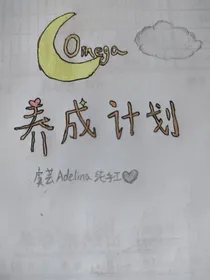 Omega
养成计划
奕芸Adelina 纯手工